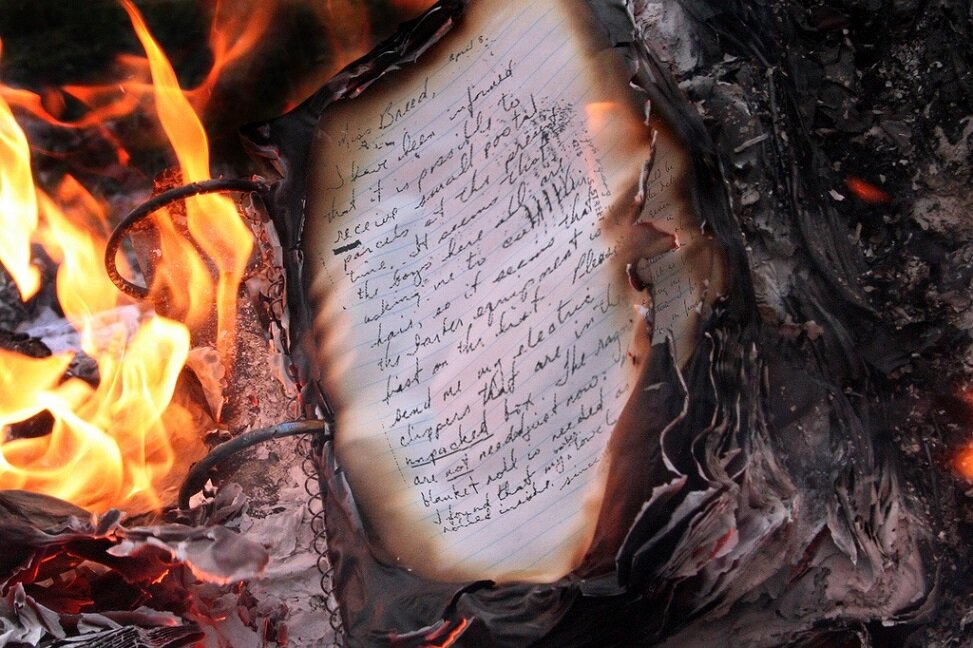 April 8.
Miss Breed,
I have been informed
that it is possible to
receive small postal
parcels at the present
time. It seems that
the boys here all are
asking me to cut their
hair, so it seems that
the barber equipment is
first on this list. Please
send me my electric
clippers that are in the
unpacked box. The rags
are not needed just now.
blanket roll is needed as
I found that my
rolled inside.